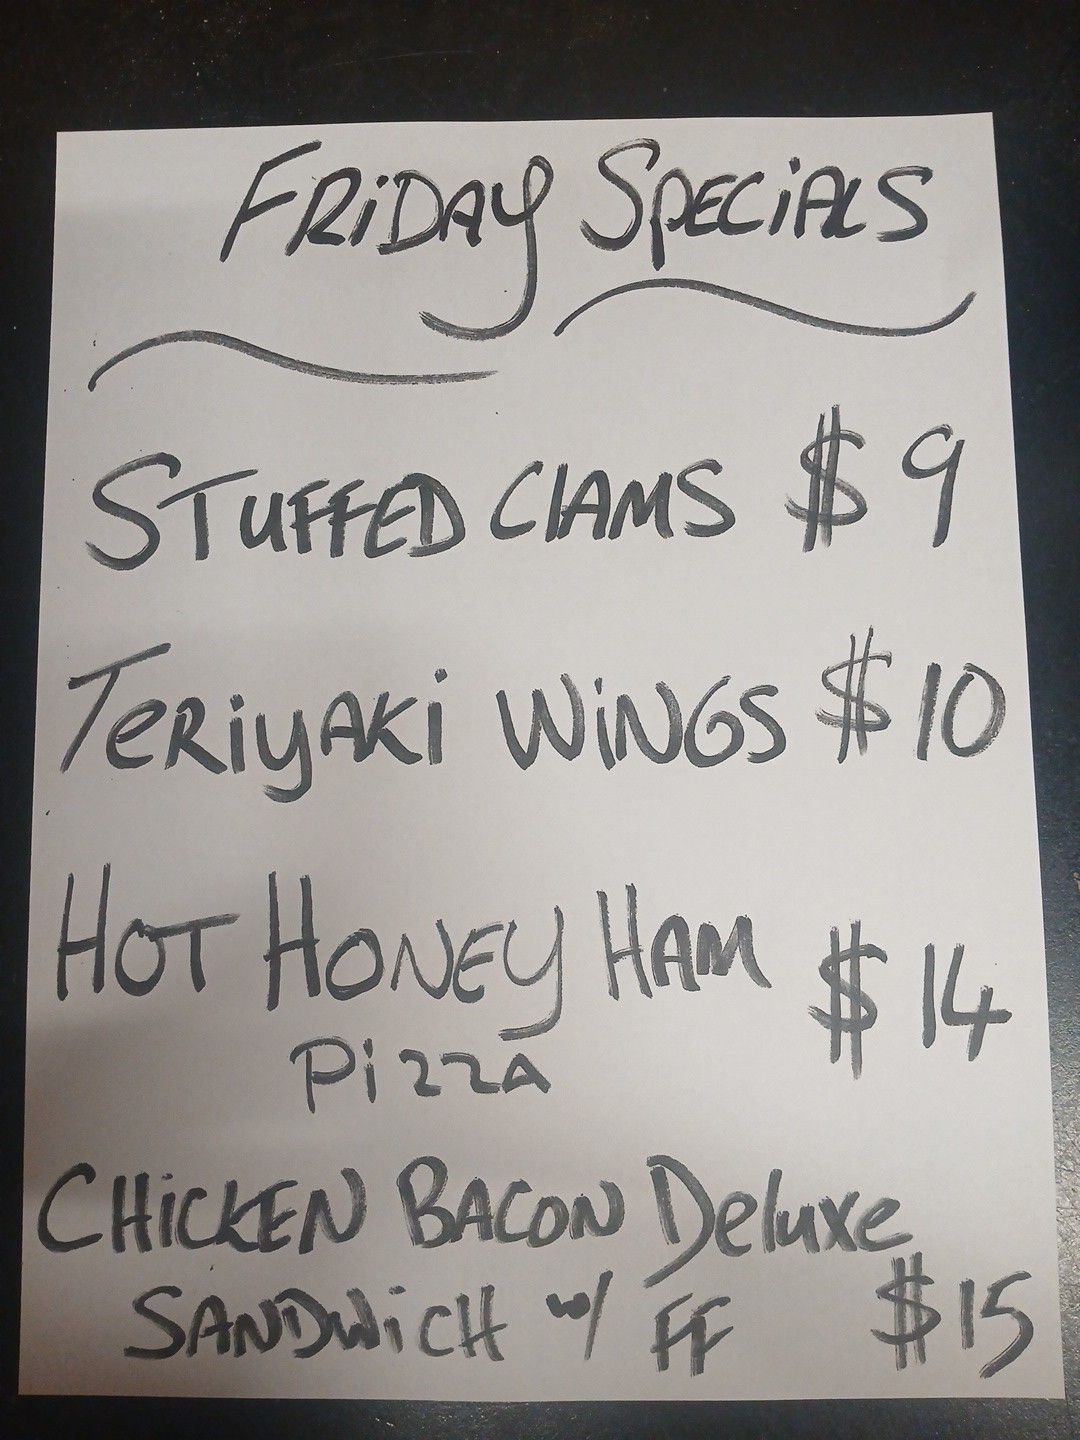 FRiDAY SPECiALS
STUFFED ClAMS $ 9
TeRiyAKi WiNGS $ 10
HOT HONEY HAM $ 14
Pizza
CHiCKEN BACON Deluxe
SANDWiCH w/ FF $ 15